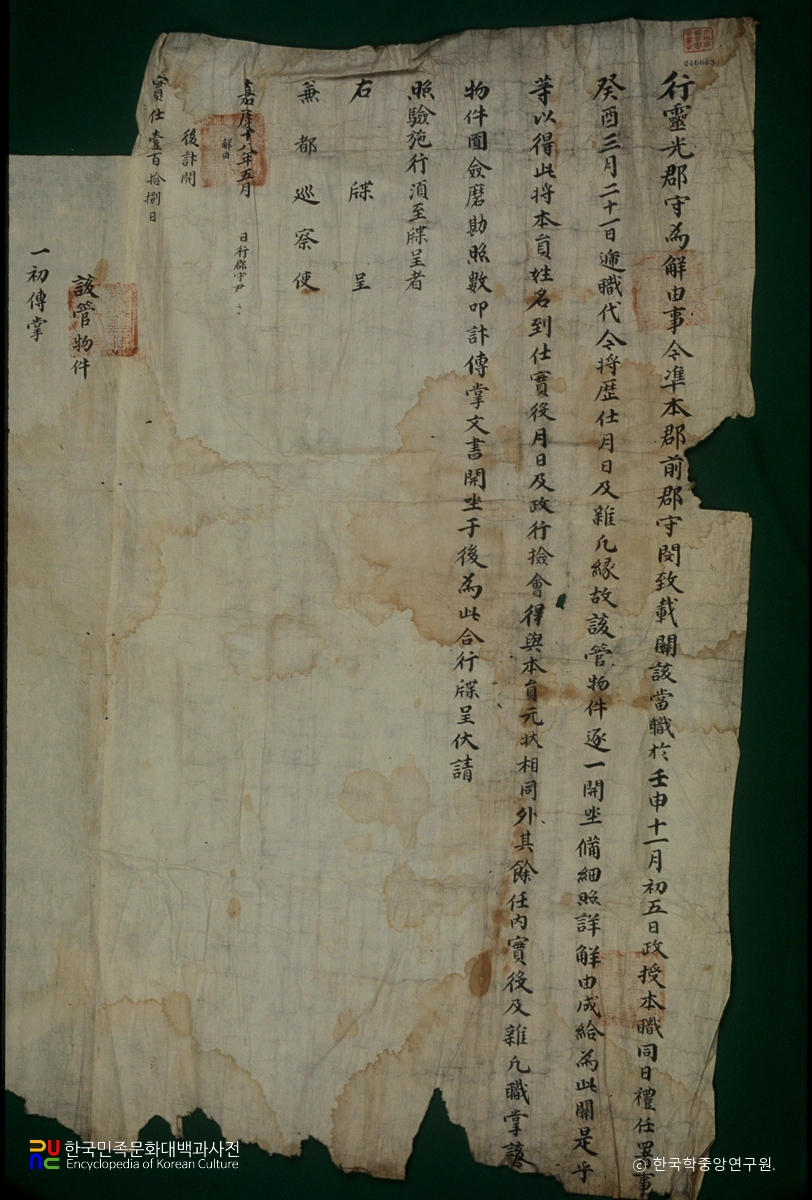 行靈光郡守為解由事今準本郡前郡守閔致載關該當職於壬申十一月初五日政授本職同日禮任署事
癸酉三月二十一日遞職代令將歷仕月日及雜凡緣故該管物件逐一開坐備細照詳解由成給為此關是乎
等以得此將本員姓名到仕實役月日及政行撿會得與本員元狀相同外其餘任內實役及雜凡職掌該
物件圓僉磨勘照數叩計傳掌文書開坐于後為此合行牒呈伏請
照驗施行須至牒呈者
右牒呈
兼都巡察使
嘉慶十八年五月 日行郡守尹
解由
後計開
實仕壹百拾捌日
該管物件
一初傳掌
246065
한국민족문화대백과사전
Encyclopedia of Korean Culture
© 한국학중앙연구원.